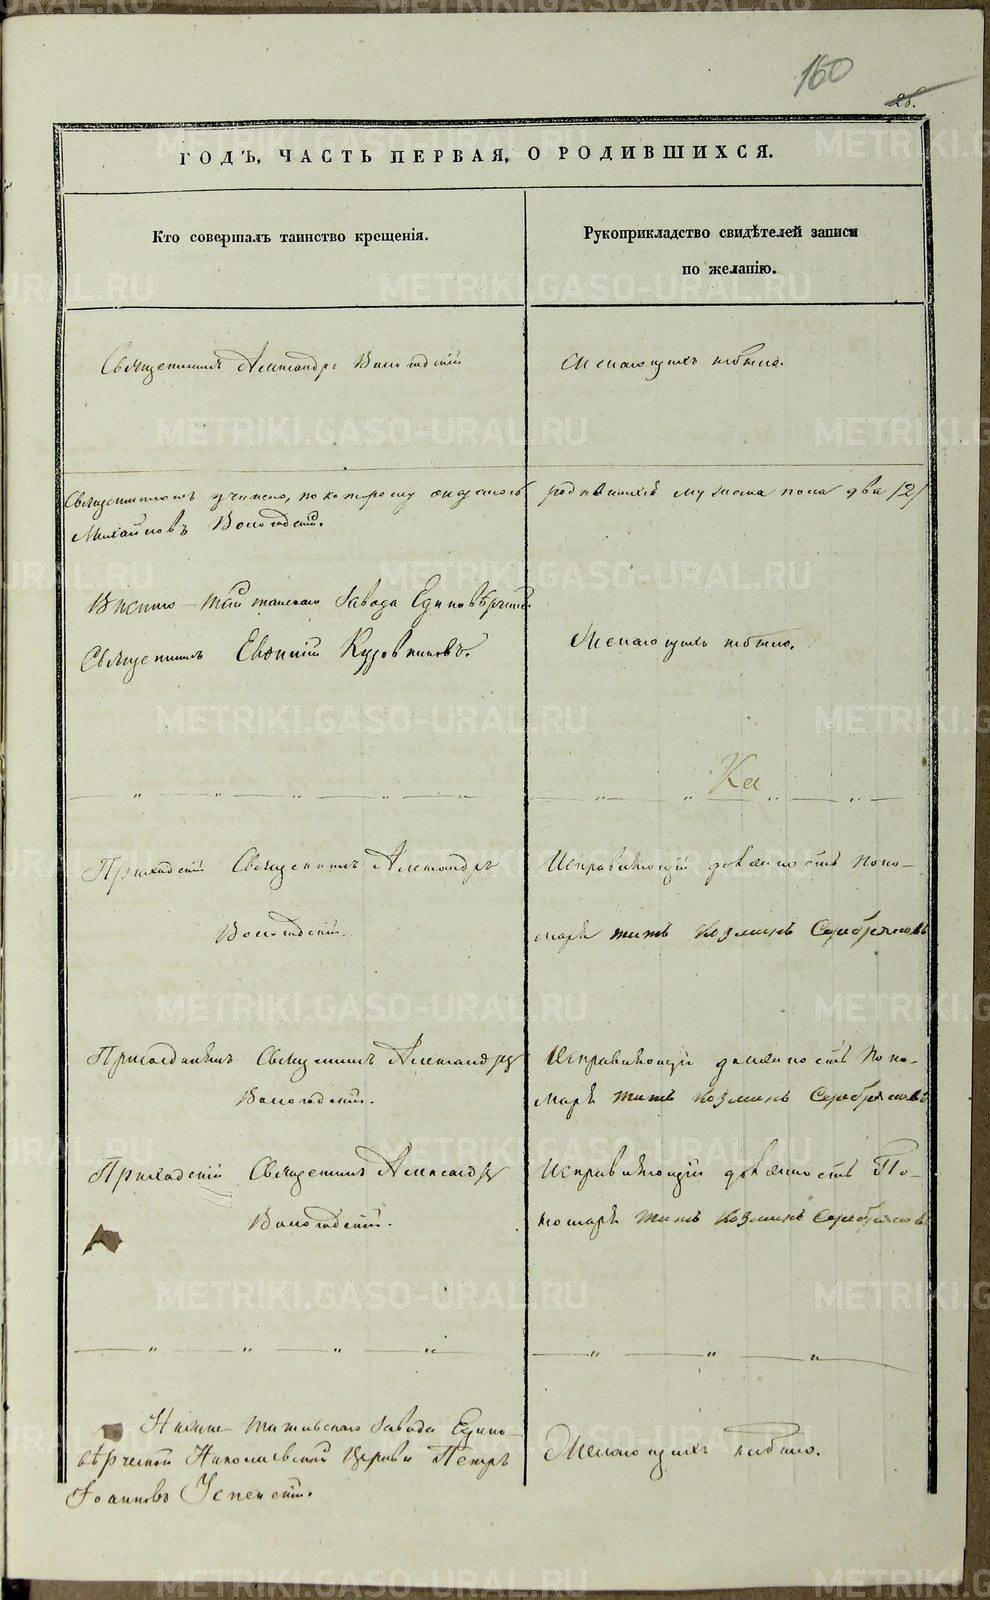 160
26.
ГОДЪ, ЧАСТЬ ПЕРВАЯ, О РОДИВШИХСЯ.
Кто совершалъ таинство крещенія.
Рукоприкладство свидѣтелей записи
по желанію.
Священникъ Александръ Вологодскій
Желающихъ небыло.
Священникомъ учинено, по которому оказалось родившихся мужеска пола два /2/
Михайловъ Вологодскій.
Тагильскаго Завода Единовѣрческій
Священникъ Евѳимій
Желающихъ небыло.
Ка
Приходскій Священникъ Александръ
Вологодскій.
Исправляющій должность Поно-
маря Титъ Козминъ Серебряковъ
Священникъ Александръ
Вологодскій.
Исправляющій должность Поно-
маря Титъ Козминъ Серебряковъ
Приходскій Священникъ Александръ
Вологодскій.
Исправляющій должность По-
номаря Титъ Козминъ Серебряковъ
Нижне-Тагильскаго Завода Едино-
вѣрческой Николаевской Церкви Петръ
Іоанновъ Успенскій.
Желающихъ небыло.
METRIKI.GASO-URAL.RU